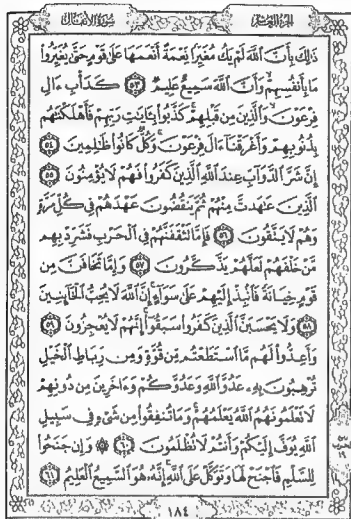 سورة الأنفال
الجزء العاشر
ذَٰلِكَ بِأَنَّ اللَّهَ لَمْ يَكُ مُغَيِّرًا نِّعْمَةً أَنْعَمَهَا عَلَىٰ قَوْمٍ حَتَّىٰ يُغَيِّرُوا
مَا بِأَنفُسِهِمْ ۙ وَأَنَّ اللَّهَ سَمِيعٌ عَلِيمٌ ٥٣ كَدَأْبِ ءَالِ
فِرْعَوْنَ ۙ وَالَّذِينَ مِن قَبْلِهِمْ ۚ كَذَّبُوا بِـَٔايَٰتِ رَبِّهِمْ فَأَهْلَكْنَٰهُم
بِذُنُوبِهِمْ وَأَغْرَقْنَآ ءَالَ فِرْعَوْنَ ۚ وَكُلٌّ كَانُوا ظَٰلِمِينَ ٥٤
إِنَّ شَرَّ الدَّوَآبِّ عِندَ اللَّهِ الَّذِينَ كَفَرُوا فَهُمْ لَا يُؤْمِنُونَ ٥٥
الَّذِينَ عَٰهَدتَّ مِنْهُمْ ثُمَّ يَنقُضُونَ عَهْدَهُمْ فِي كُلِّ مَرَّةٍ
وَهُمْ لَا يَتَّقُونَ ٥٦ فَإِمَّا تَثْقَفَنَّهُمْ فِي الْحَرْبِ فَشَرِّدْ بِهِم
مَّنْ خَلْفَهُمْ لَعَلَّهُمْ يَذَّكَّرُونَ ٥٧ وَإِمَّا تَخَافَنَّ مِن
قَوْمٍ خِيَانَةً فَانبِذْ إِلَيْهِمْ عَلَىٰ سَوَآءٍ ۚ إِنَّ اللَّهَ لَا يُحِبُّ الْخَآئِنِينَ
٥٨ وَلَا يَحْسَبَنَّ الَّذِينَ كَفَرُوا سَبَقُوا ۚ إِنَّهُمْ لَا يُعْجِزُونَ ٥٩
وَأَعِدُّوا لَهُم مَّا اسْتَطَعْتُم مِّن قُوَّةٍ وَمِن رِّبَاطِ الْخَيْلِ
تُرْهِبُونَ بِهِ عَدُوَّ اللَّهِ وَعَدُوَّكُمْ وَءَاخَرِينَ مِن دُونِهِمْ
لَا تَعْلَمُونَهُمُ اللَّهُ يَعْلَمُهُمْ ۚ وَمَا تُنفِقُوا مِن شَيْءٍ فِي سَبِيلِ
اللَّهِ يُوَفَّ إِلَيْكُمْ وَأَنتُمْ لَا تُظْلَمُونَ ٦٠ ۞ وَإِن جَنَحُوا
لِلسَّلْمِ فَاجْنَحْ لَهَا وَتَوَكَّلْ عَلَى اللَّهِ ۚ إِنَّهُ هُوَ السَّمِيعُ الْعَلِيمُ ٦١
١٨٤